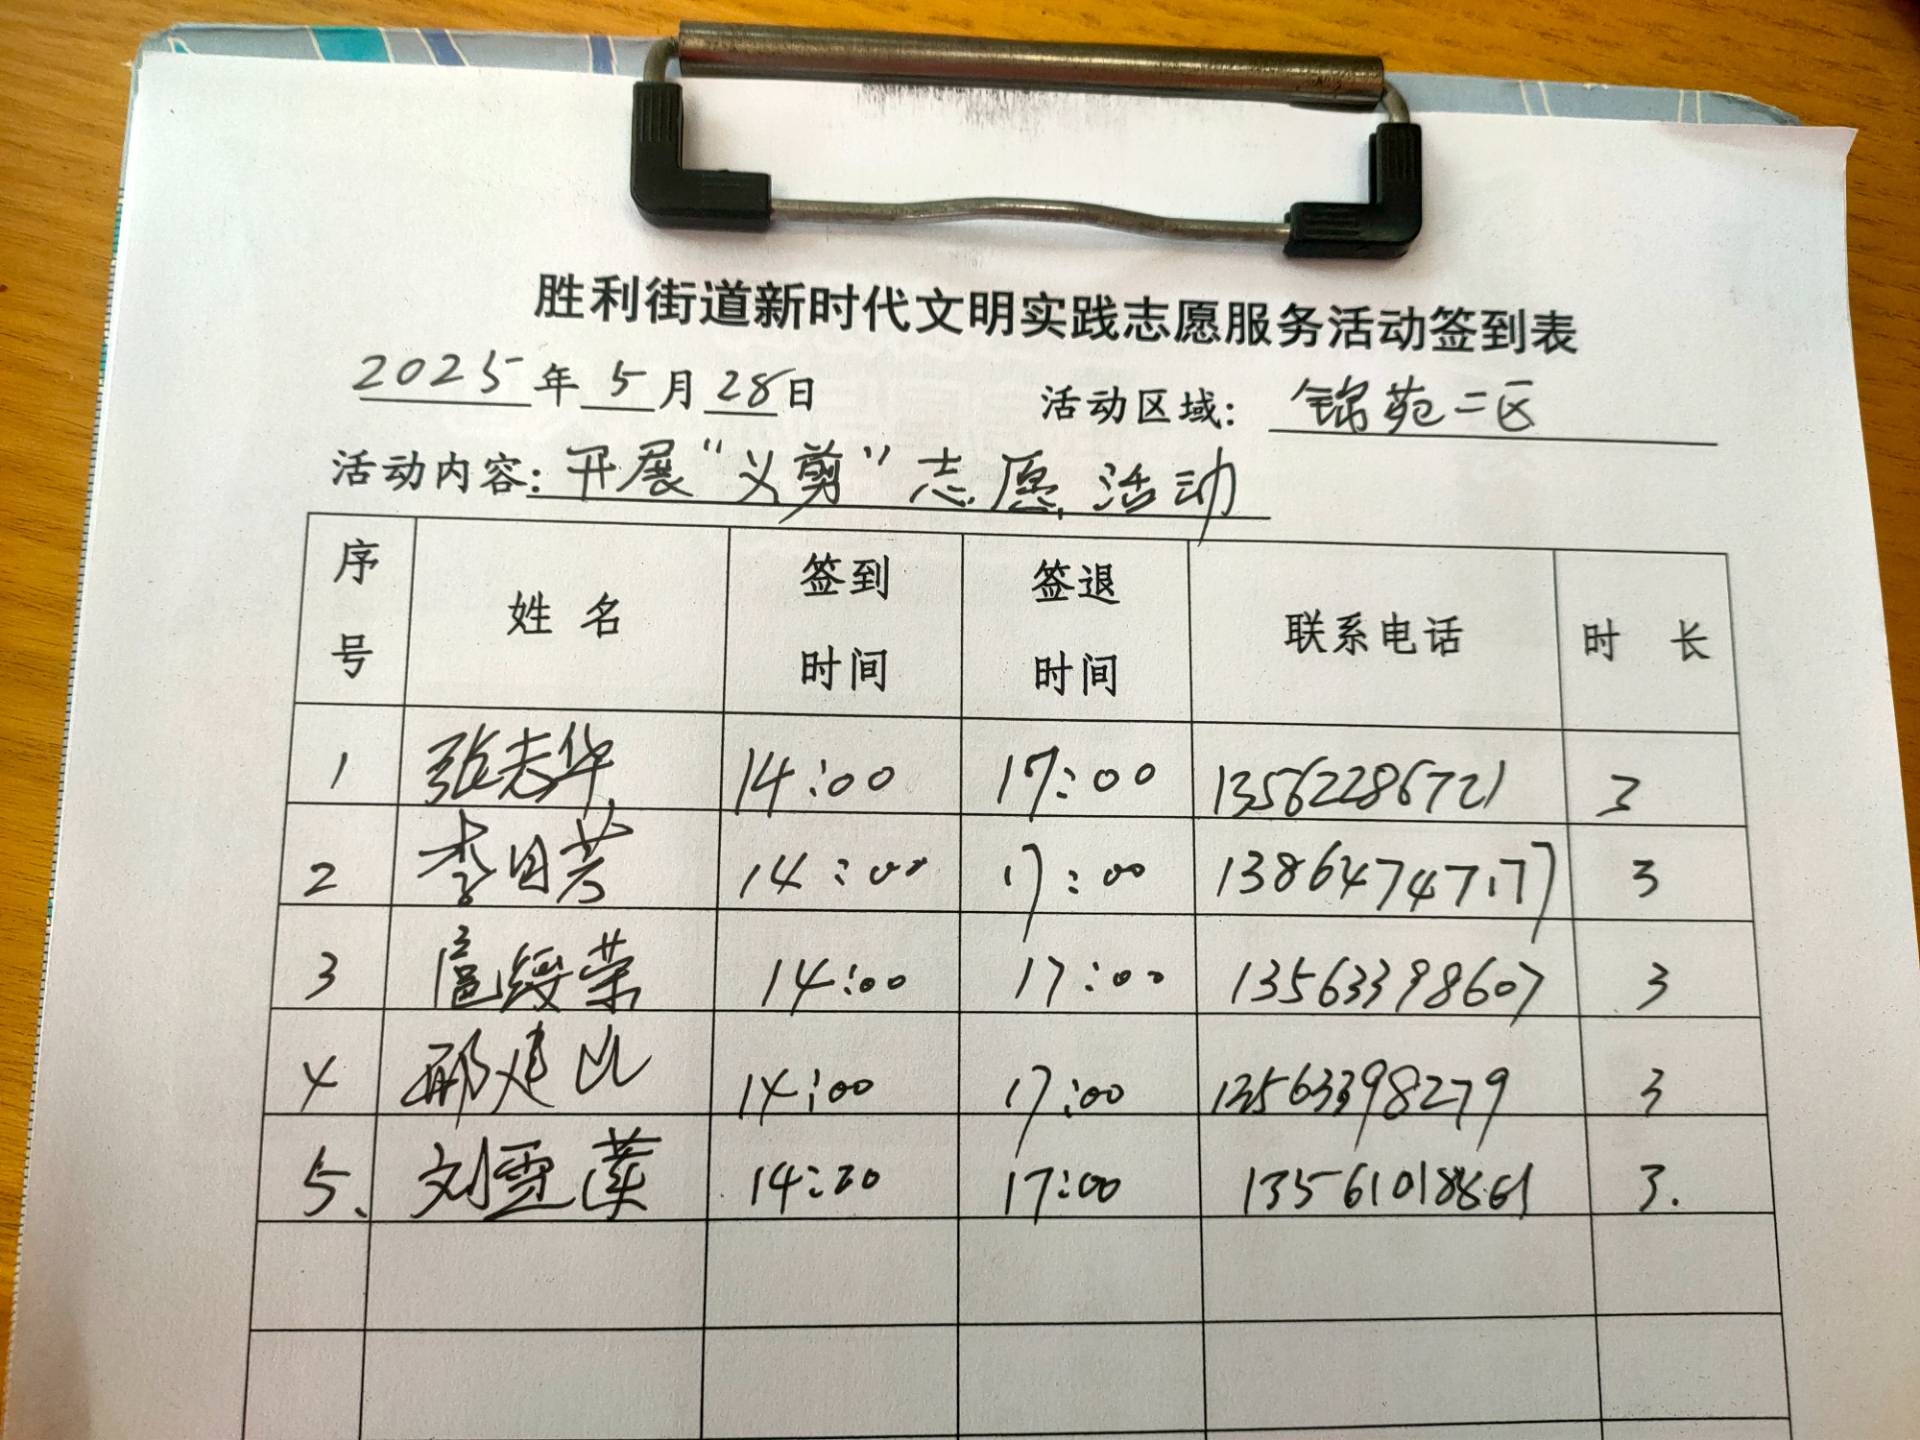 胜利街道新时代文明实践志愿服务活动签到表
2025年 5月 28日 活动区域：锦苑二区
活动内容：开展“义剪”志愿活动
序号 姓名 签到时间 签退时间 联系电话 时长
1 张志华 14:00 17:00 13562286721 3
2 李日芳 14:00 17:00 13864747177 3
3 扈绶荣 14:00 17:00 13563398607 3
4 邢建山 14:00 17:00 13563398279 3
5、 刘雪莲 14:20 17:00 13561018861 3.